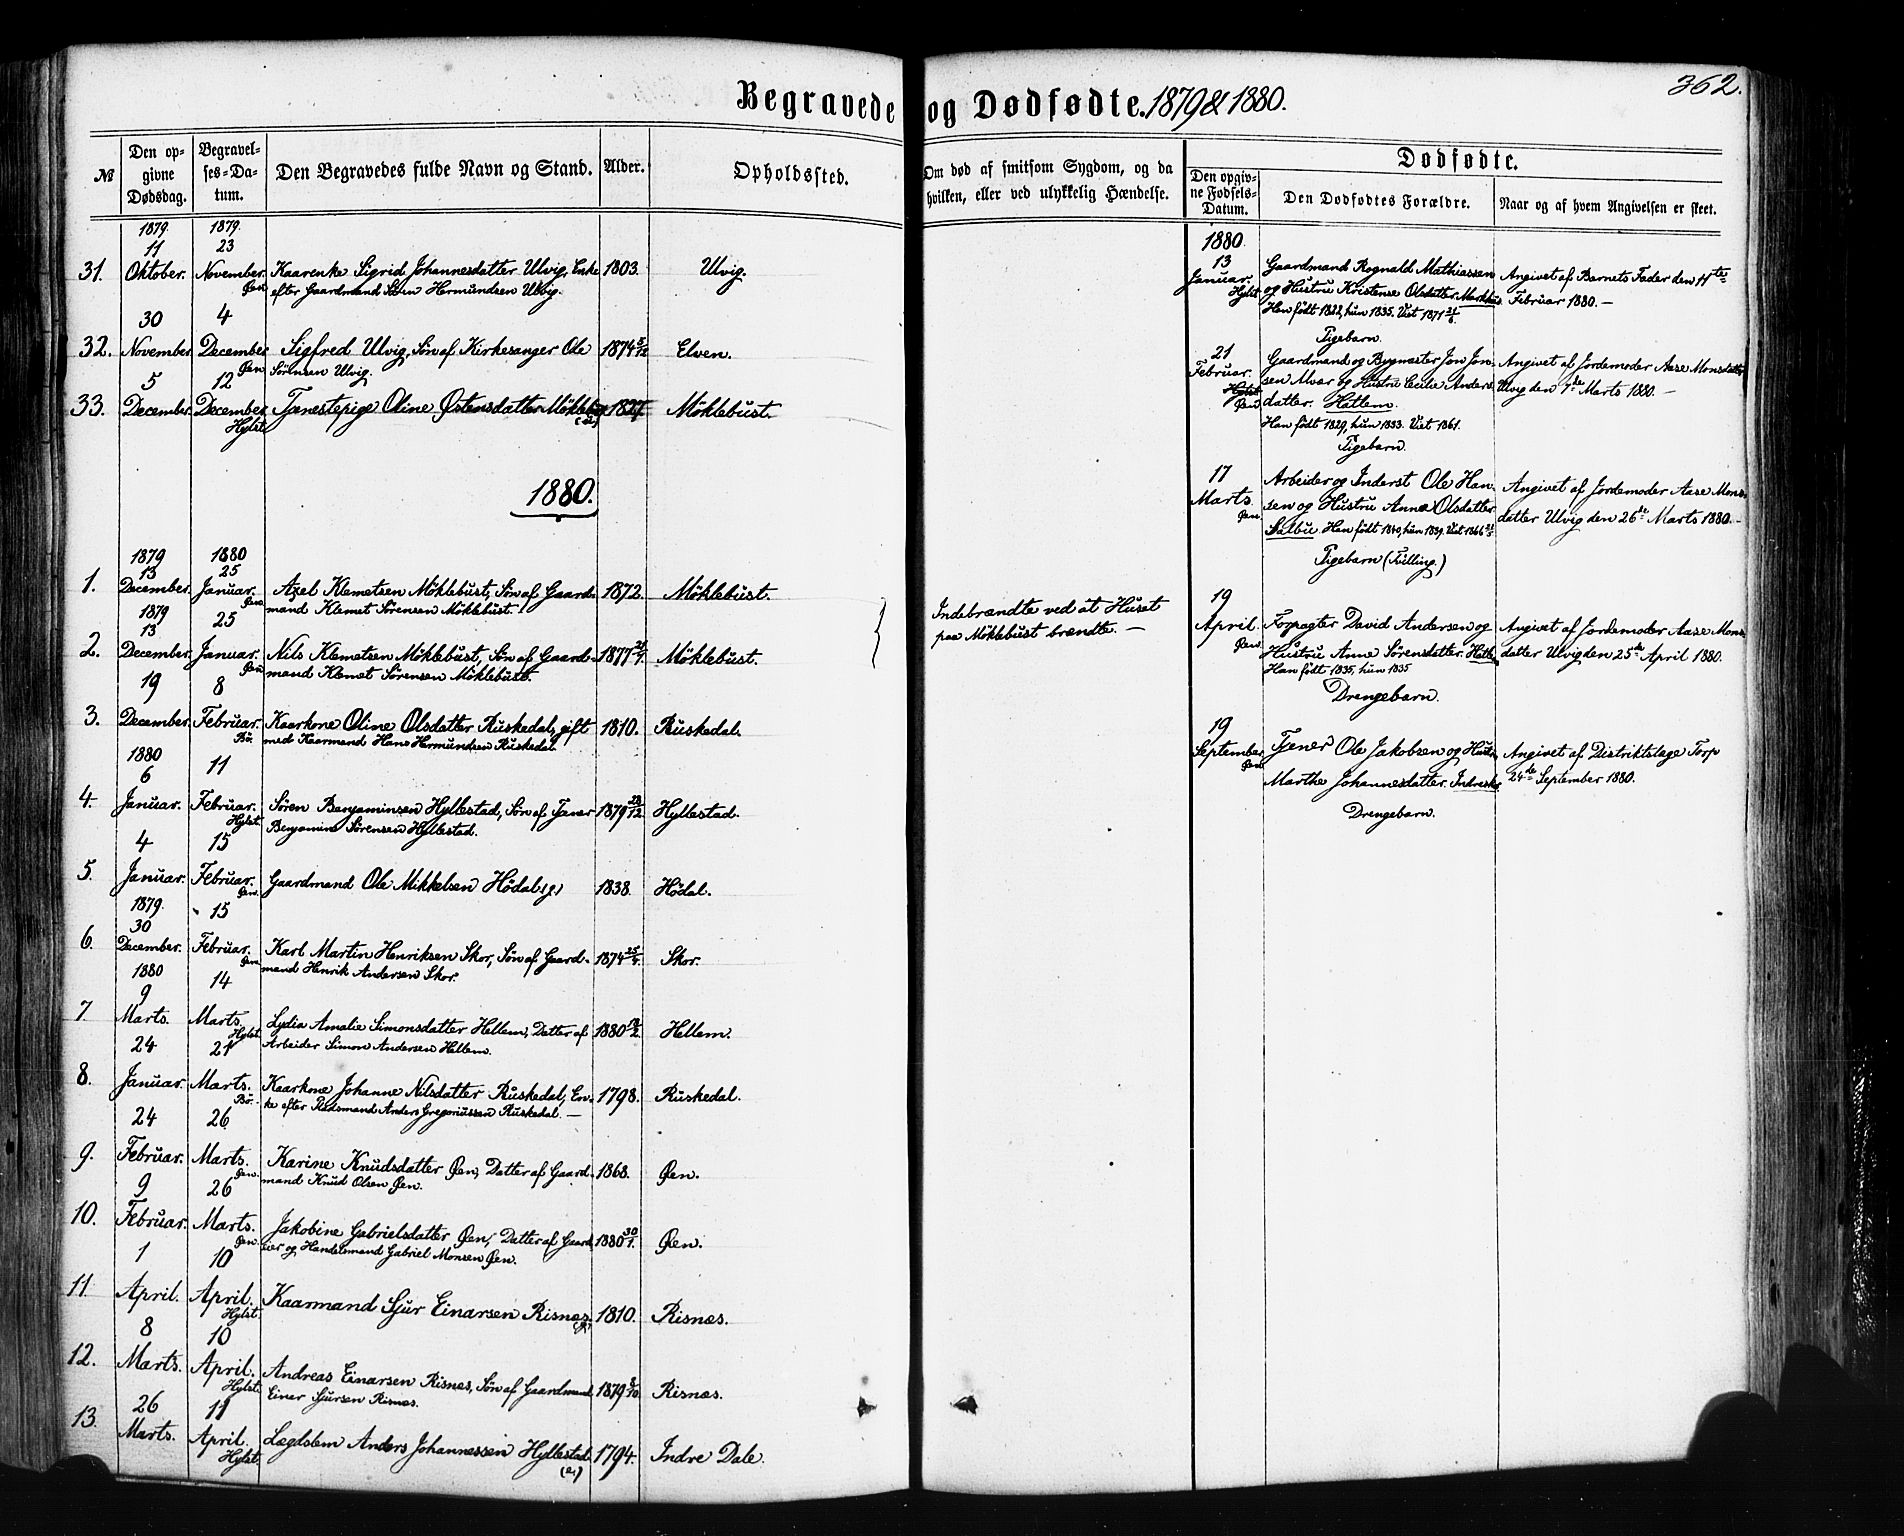 362.
Begravede og Dødfødte. 1879 & 1880.
№
Den opgivne Dødsdag.
Begravelses-Datum.
Den Begravedes fulde Navn og Stand.
Alder.
Opholdssted.
Om død af smitsom Sygdom, og da hvilken, eller ved ulykkelig Hændelse.
Dødfødte.
Den opgivne Fødsels-Datum.
Den Dødfødtes Forældre.
Naar og af hvem Angivelsen er skeet.
1879. 1879.
11 23
31. Oktober. November. Kaarenke Sigrid Johannesdatter Ulvig, Enke 1803. Ulvig.
Øen efter Gaardmand Søren Hermundsen Ulvig.
30 4
32. November. December. Sigfred Ulvig, Søn af Kirkesanger Ole 1874 Elven.
Øen Sørensen Ulvig.
5 12
33. December. December. Tjenestepige Oline Østensdatter Møklebust 1827. Møklebust.
Hylst.
1880.
1879 1880
13 25
1. December. Januar. Axel Klemetsen Møklebust, Søn af Gaard- 1872. Møklebust.
Øen mand Klemet Sørensen Møklebust.
1879
13 25
2. December. Januar. Nils Klemetsen Møklebust, Søn af Gaard- 1877 Møklebust.
Øen mand Klemet Sørensen Møklebust.
Indebrændte ved at Huset
paa Møklebust brændte. —
19 8
3. December. Februar. Kaarkone Oline Olsdatter Ruskedal, gift 1810. Ruskedal.
Bø. med Kaarmand Hans Hermundsen Ruskedal.
1880
6 11
4. Januar. Februar. Søren Benjaminsen Hyllestad, Søn af Tjener 1879 28/12. Hyllestad.
Hylst. Benjamin Sørensen Hyllestad.
4 15
5. Januar. Februar. Gaardmand Ole Mikkelsen Hødal (g) 1838. Hødal.
Øen.
1879.
30 15
6. December. Februar. Karl Martin Henriksen Skor, Søn af Gaard- 1874 25/4. Skor.
Øen mand Henrik Andersen Skor.
1880
9 14
7. Marts. Marts. Lydia Amalie Simonsdatter Hellem, Datter af 1880 Hellem.
Hylst. Arbeider Simon Andersen Hellem.
24 21
8. Januar. Marts. Kaarkone Johanne Nilsdatter Ruskedal, En- 1798. Ruskedal.
Bø. ke efter Anders Gregoriussen Ruskedal. —
24 26
9. Februar. Marts. Karine Knudsdatter Øen, Datter af Gaard- 1868. Øen.
Øen. mand Knud Olsen Øen.
9 26
10. Februar. Marts. Jakobine Gabrielsdatter Øen, Datter af Gaard- 1880 30/1. Øen.
Øen. eier og Handelsmand Gabriel Monsen Øen.
1 10
11. April. April. Kaarmand Sjur Einarsen Risnæs. 1810. Risnæs.
Hylst.
8 10
12. Marts. April. Andreas Einarsen Risnæs, Søn af Gaardmand 1879 Risnæs.
Hylst. Einar Sjursen Risnæs.
26 11
13. Marts. April. Lægdslem Anders Johannessen Hyllestad 1794. Indre Dale.
Hylst. (e.)
1880.
13 Gaardmand Rognald Mathiassen Angivet af Barnets Fader den 11te
Januar. og Hustru Kristense Olsdatter Februar 1880. —
Hylst. Han født 1822, hun 1835. Viet 1871
Pigebarn.
21 Gaardmand og Bygmester Jon Jon- Angivet af Jordemoder Aase Monsdatter
Februar. sen Alvær og Hustru Cecilie Anders- Ulvig den 7de Marts 1880. —
Øen datter. Hattem.
Han født 1829, hun 1833. Viet 1861.
Pigebarn.
17 Arbeider og Inderst Ole Han- Angivet af Jordemoder Aase Mons-
Marts. sen og Hustru Anna Olsdatter datter Ulvig den 26de Marts 1880. —
Øen Salbu. Han født 1840, hun 1839. Viet 1866
Pigebarn (Tvilling.)
19
April. Forpagter David Andersen og Angivet af Jordemoder Aase Mons-
Øen. Hustru Anne Sørensdatter. datter Ulvig den 25de April 1880.
Han født 1835, hun 1835
Drengebarn.
19
September. Tjener Ole Jakobsen og Hustru Angivet af Distriktslæge Torp
Øen Marthe Johannesdatter. 24de September 1880.
Drengebarn.